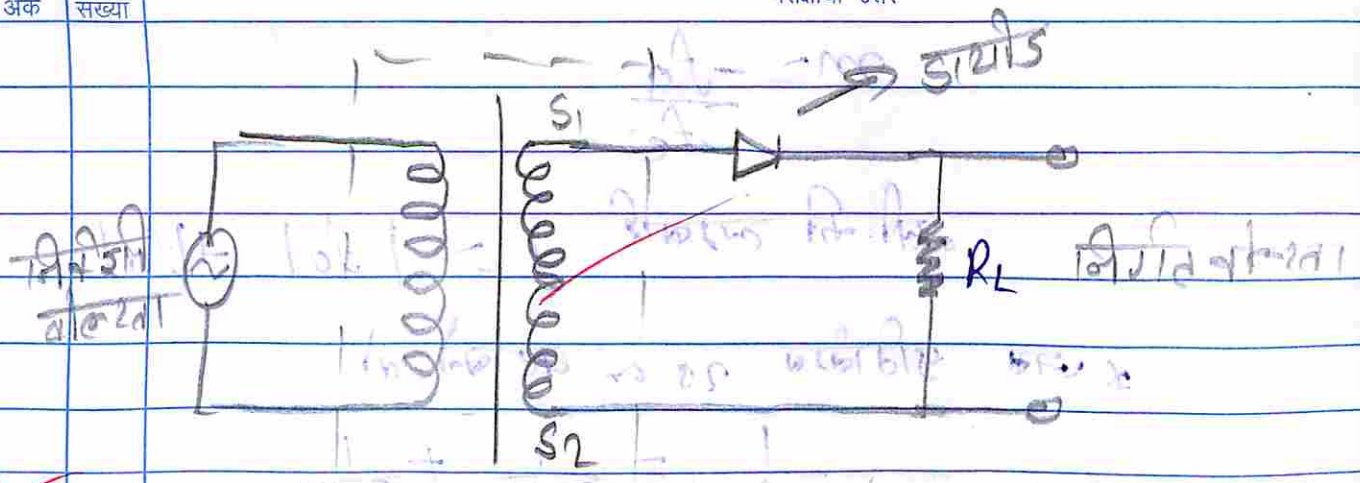 अंक संख्या
डायोड
S1
निवेशी
वोल्टता
RL
निर्गत वोल्टता
S2